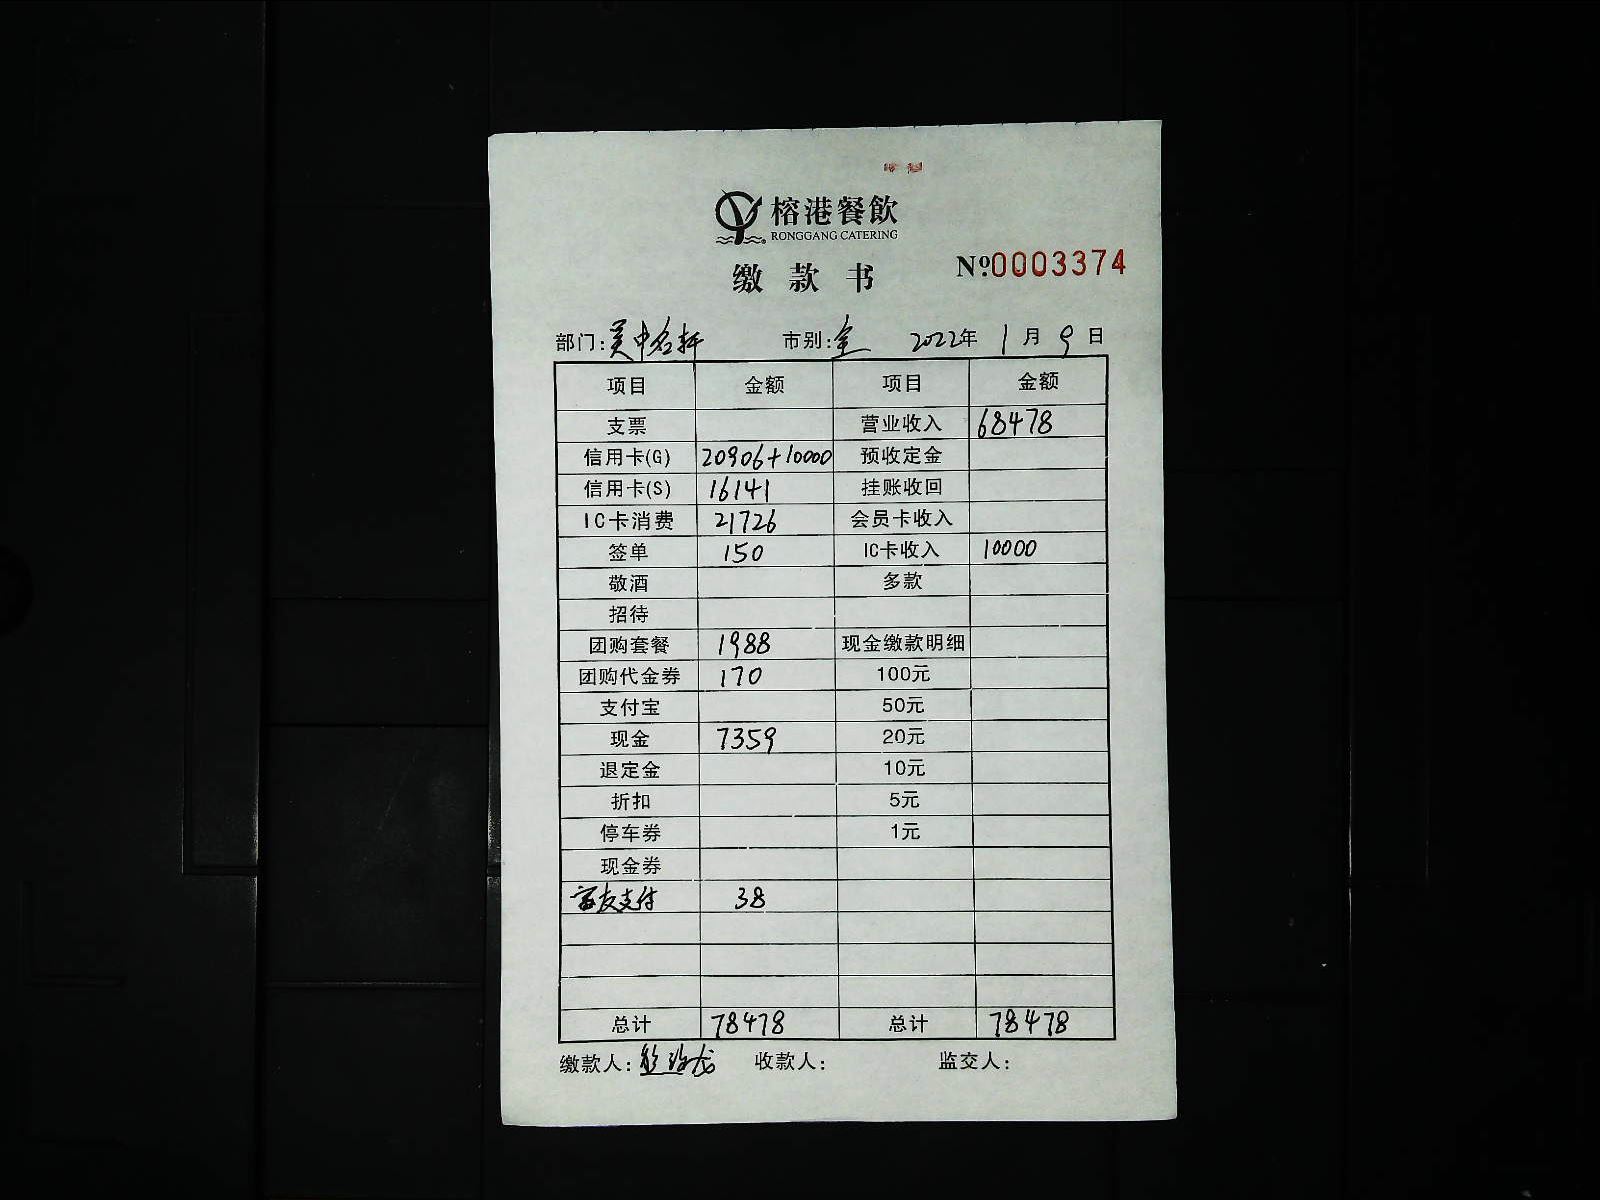 榕港餐飲
RONGGANG CATERING
缴款书 Nº0003374
部门:吴中名轩 市别:全 2022年 1月 9日
项目 金额 项目 金额
支票 营业收入 68478
信用卡(G) 20906+10000 预收定金
信用卡(S) 16141 挂账收回
IC卡消费 21726 会员卡收入
签单 150 IC卡收入 10000
敬酒 多款
招待
团购套餐 1988 现金缴款明细
团购代金券 170 100元
支付宝 50元
现金 7359 20元
退定金 10元
折扣 5元
停车券 1元
现金券
富友支付 38
总计 78478 总计 78478
缴款人: 收款人: 监交人: